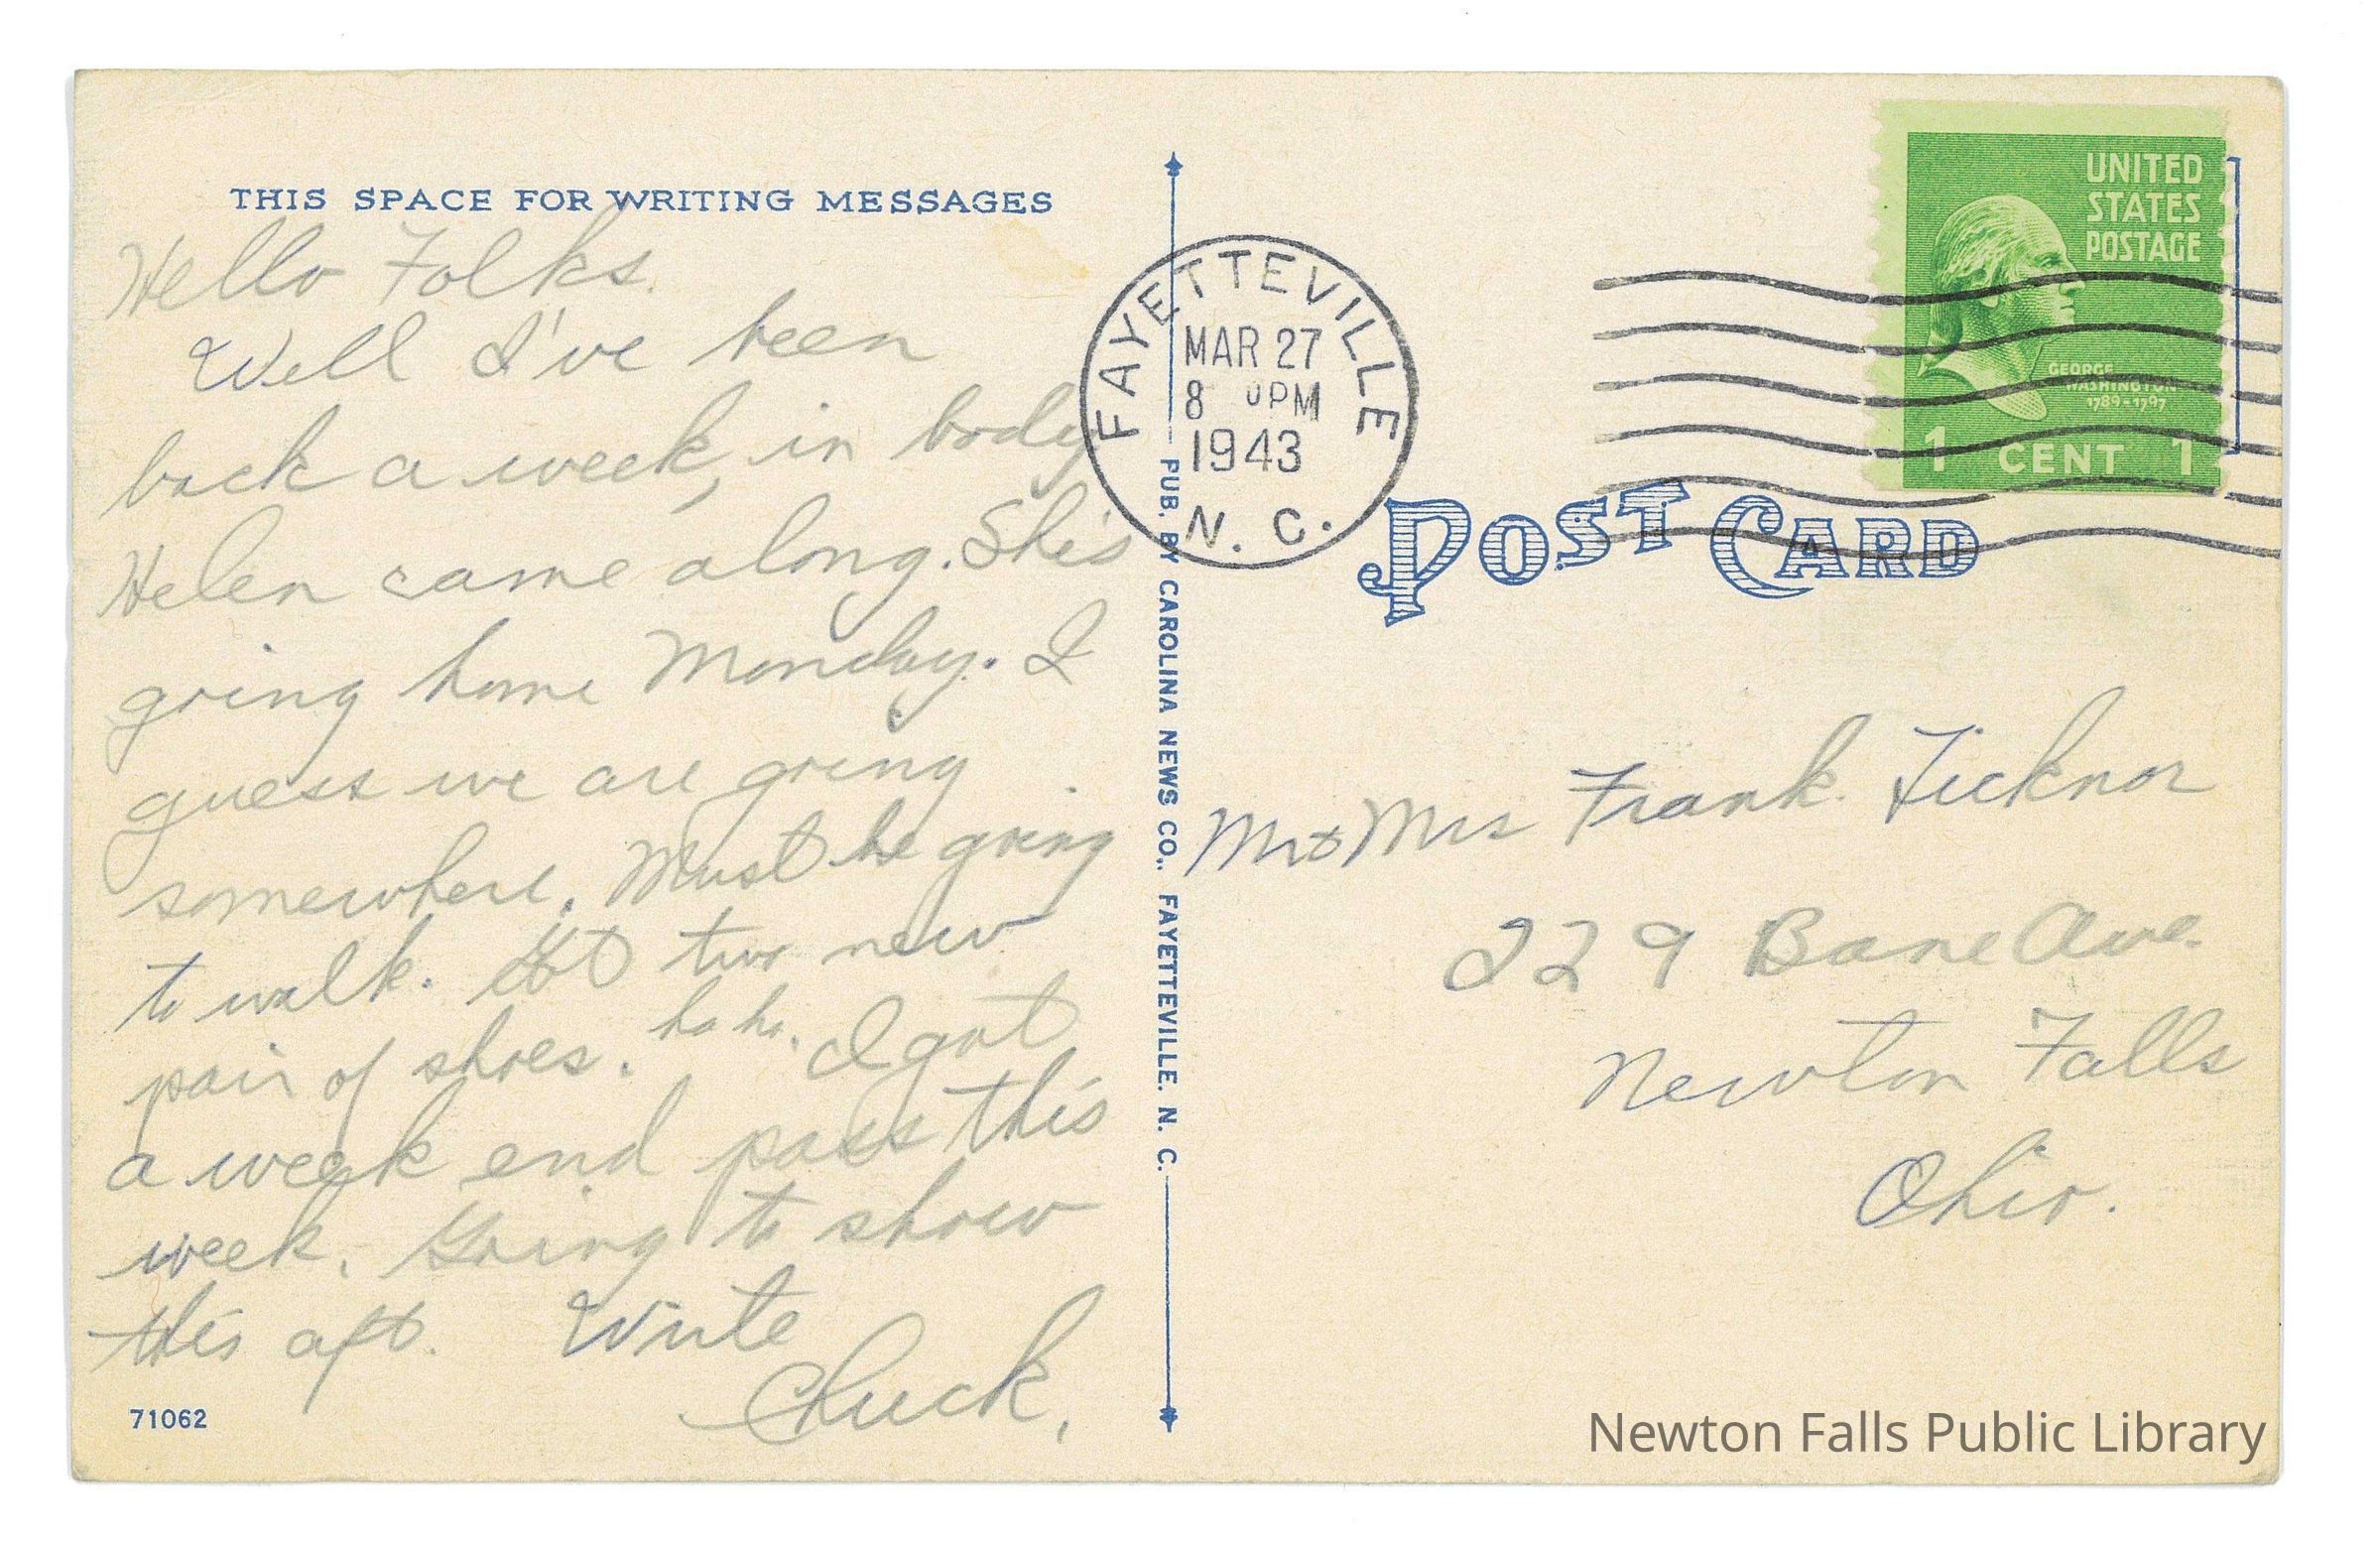 THIS SPACE FOR WRITING MESSAGES
Hello Folks.
Well I've been
back a week, in body
Helen came along. She's
going home Monday. I
guess we are going
somewhere. Must be going
to walk. Got two new
pair of shoes. ha ha. I got
a week end pass this
week. Going to show
this aft. Write
Chuck.
71062
PUB. BY CAROLINA NEWS CO., FAYETTEVILLE. N. C.
FAYETTEVILLE
MAR 27
8 PM
1943
N. C.
UNITED
STATES
POSTAGE
GEORGE
WASHINGTON
1789-1797
1 CENT 1
POST CARD
Mr & Mrs Frank Ticknor
229 Bane Ave.
Newton Falls
Ohio.
Newton Falls Public Library